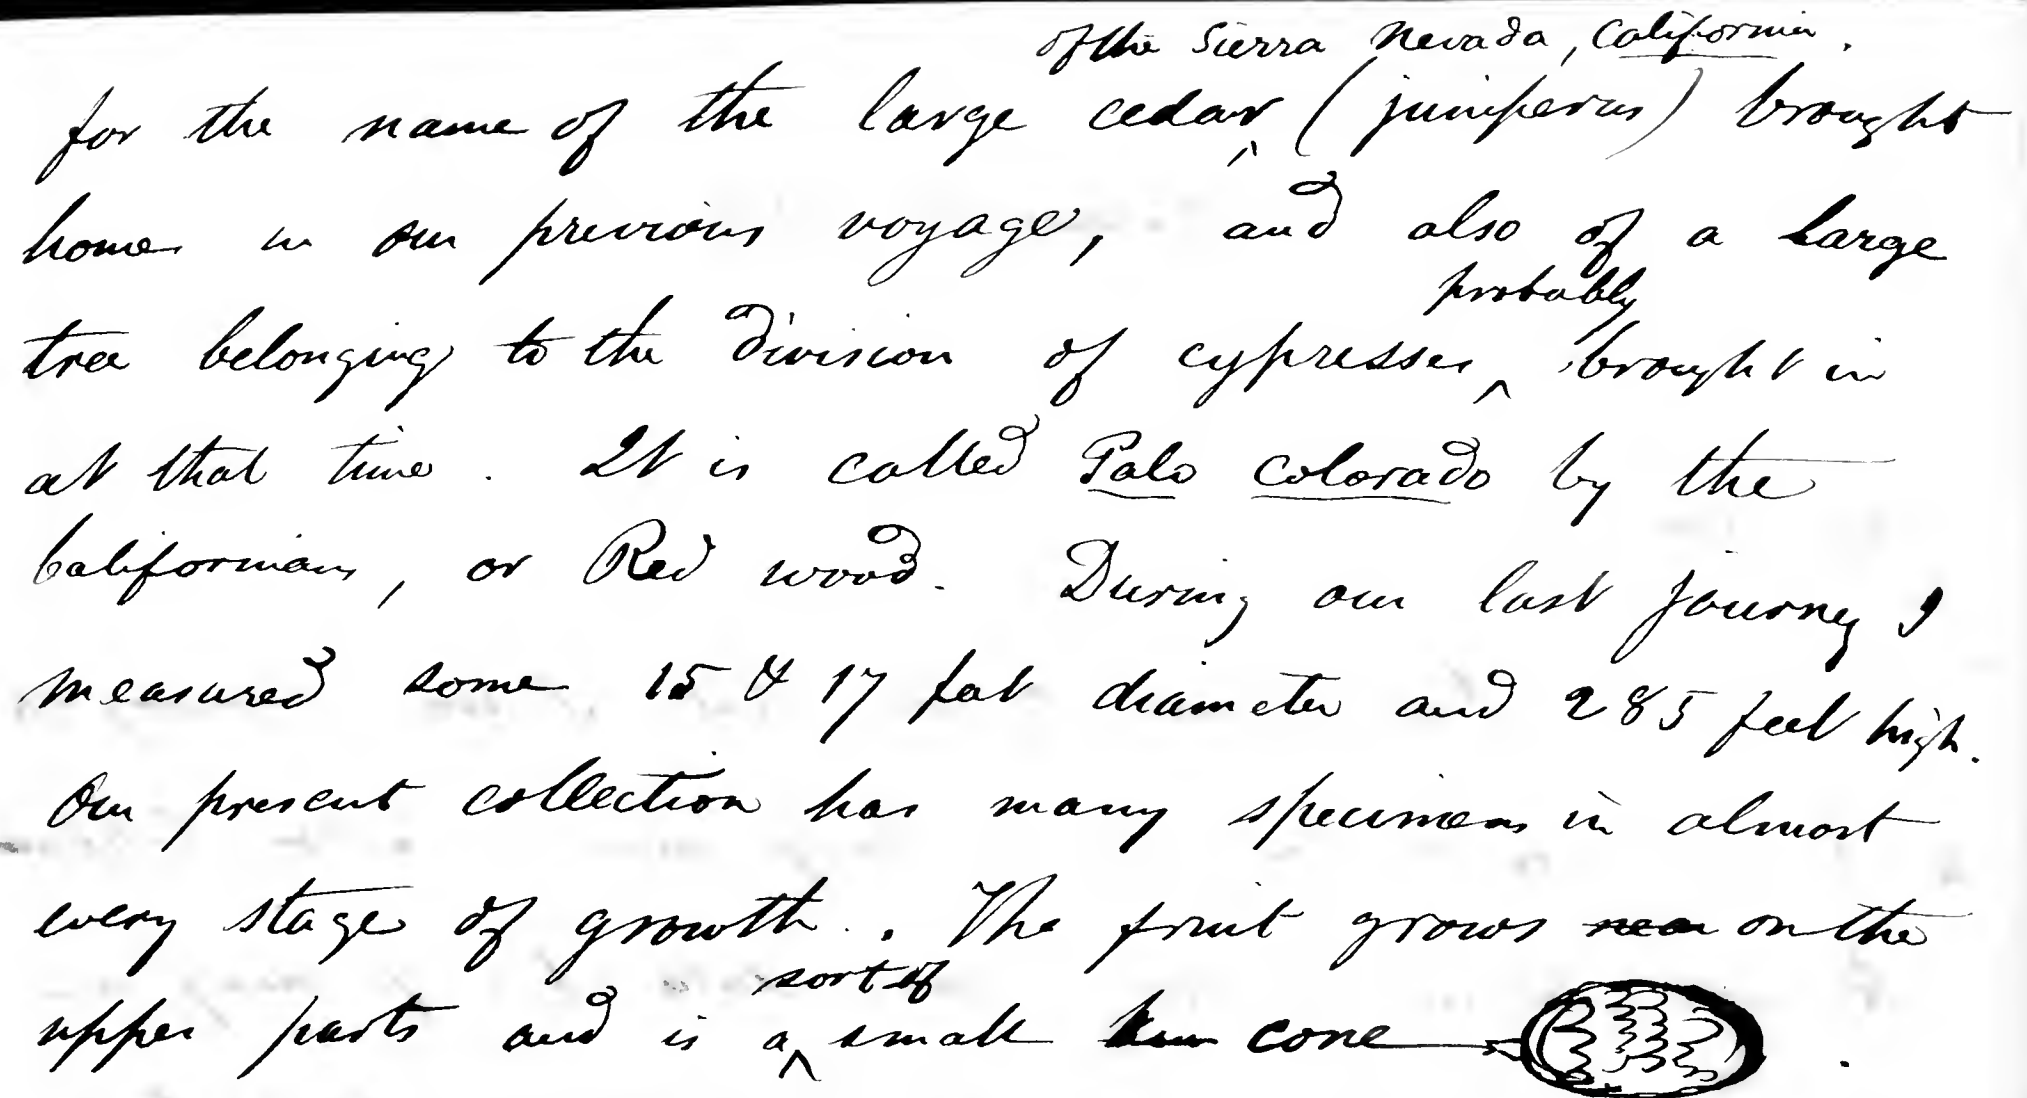 of the Sierra Nevada, California.
for the name of the large cedar ^ (juniperus) brought
home in our previous voyage, and also of a large
probably
tree belonging to the division of cypresses ^ brought in
at that time. It is called Palo colorado by the
Californians, or Red wood. During our last journey I
measured some 15 & 17 feet diameter and 285 feet high.
Our present collection has many specimens in almost
every stage of growth. The fruit grows near on the
sort of
upper parts and is a ^ small cone .